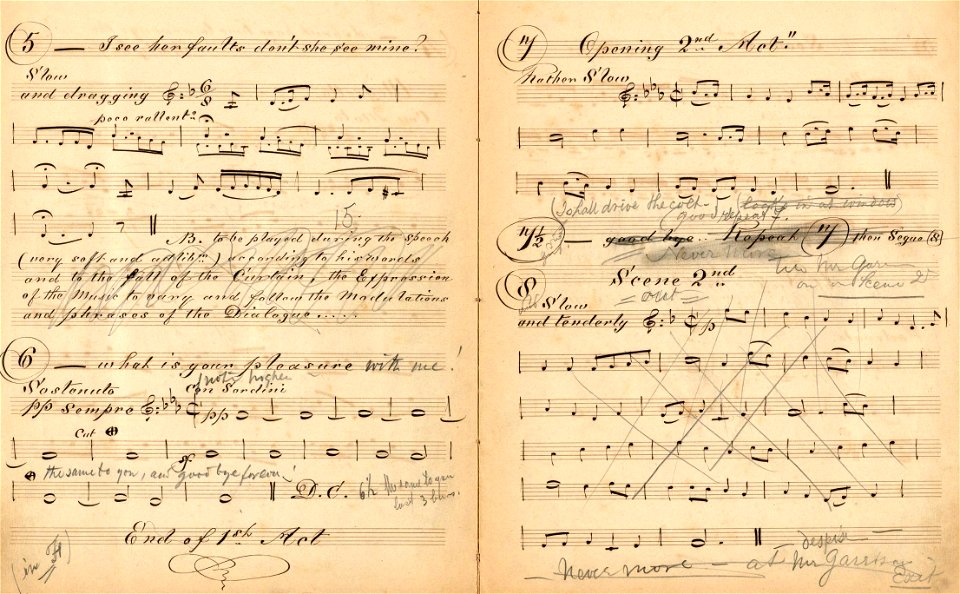 5 — I see her faults don't she see mine?
Slow
and dragging 6/8
poco rallent:
15
N.B. to be played during the speech
(very soft and ad lib:) according to his words
and to the fall of the Curtain, the Expression
of the Music to vary and follow the Modulations
and phrases of the Dialogue .....
6 — what is your pleasure with me!
not higher
Sostenuto Con Sordini
pp Sempre pp
Cut
sf
the same to you, and good bye forever!
D.C. 6½ the same to you
last 3 bars.
End of 1st Act
7 Opening 2nd Act"
Rather Slow
(I shall drive the colt (looks in at window)
(good repeat 7.
7½ — good bye .. Repeat (7) then Segue (8)
Never more
on in Scene 2d
8 Scene 2nd
= out =
Slow
and tenderly p
despise
— Never more — at Mr Garrison
Exit